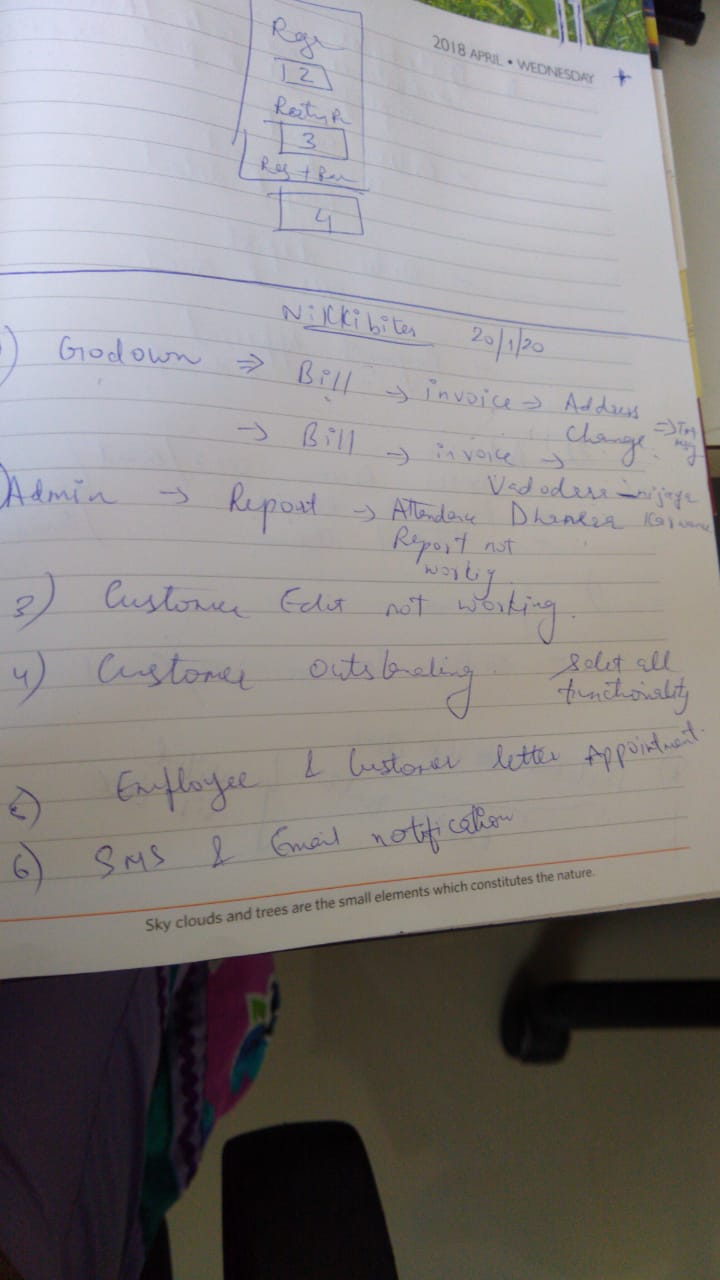 2018 APRIL • WEDNESDAY
12
3
4
Nikkibites 20/1/20
) Godown ⇒ Bill → invoice → Address Change ⇒
→ Bill → invoice →
Vadodara
Admin → Report → Attendance Report not working
3) Customer Edit not working.
4) Customer outstanding. Select all functionality
5) Employee & Customer letter Appointment.
6) SMS & Email notification
Sky clouds and trees are the small elements which constitutes the nature.